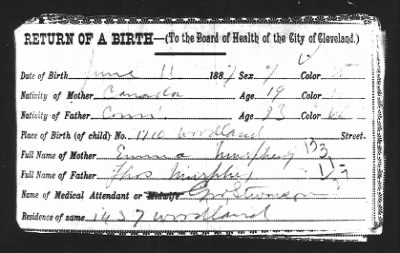 RETURN OF A BIRTH—(To the Board of Health of the City of Cleveland.)
Date of Birth June 11 1887 Sex Color
Nativity of Mother Canada Age 19 Color
Nativity of Father Conn. Age 23 Color
Place of Birth (of child) No. 1710 Woodland Street.
Full Name of Mother Emma Murphy
Full Name of Father Thos Murphy
Name of Medical Attendant or Midwife
Residence of same 1437 Woodland